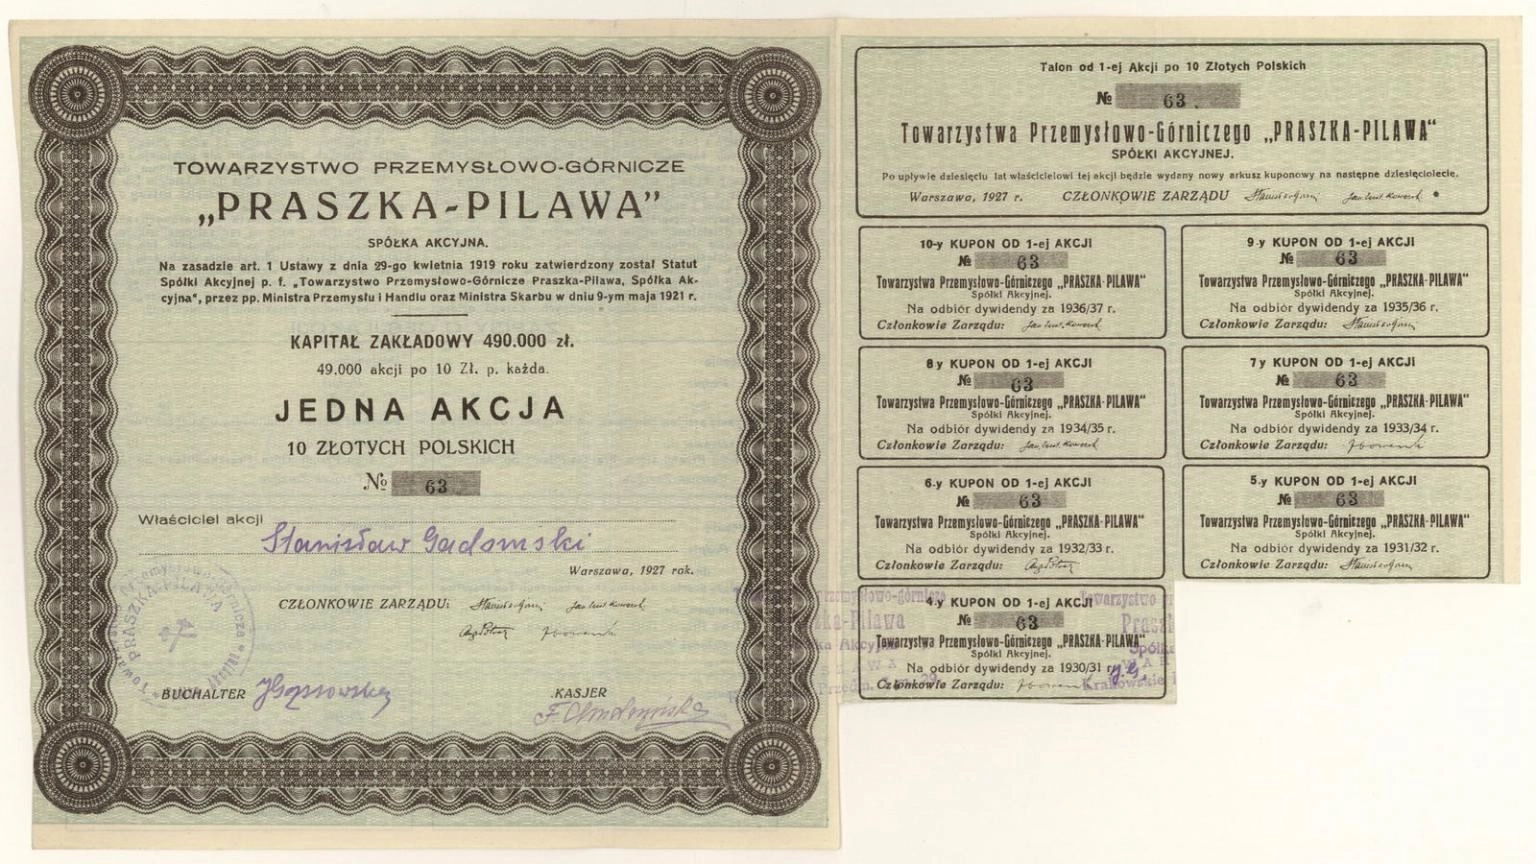 TOWARZYSTWO PRZEMYSŁOWO-GÓRNICZE
„PRASZKA-PILAWA”
SPÓŁKA AKCYJNA.
Na zasadzie art. 1 Ustawy z dnia 29-go kwietnia 1919 roku zatwierdzony został Statut
Spółki Akcyjnej p. f. „Towarzystwo Przemysłowo-Górnicze Praszka-Pilawa, Spółka Ak-
cyjna”, przez pp. Ministra Przemysłu i Handlu oraz Ministra Skarbu w dniu 9-ym maja 1921 r.
KAPITAŁ ZAKŁADOWY 490.000 zł.
49.000 akcji po 10 Zł. p. każda.
JEDNA AKCJA
10 ZŁOTYCH POLSKICH
№ 63
Właściciel akcji
Stanisław Gadomski
Warszawa, 1927 rok.
CZŁONKOWIE ZARZĄDU:
BUCHALTER
KASJER
PRASZKA-PILAWA
Talon od 1-ej Akcji po 10 Złotych Polskich
№ 63
Towarzystwa Przemysłowo-Górniczego „PRASZKA-PILAWA”
SPÓŁKI AKCYJNEJ.
Po upływie dziesięciu lat właścicielowi tej akcji będzie wydany nowy arkusz kuponowy na następne dziesięciolecie.
Warszawa, 1927 r. CZŁONKOWIE ZARZĄDU
10-y KUPON OD 1-ej AKCJI
№ 63
Towarzystwa Przemysłowo-Górniczego „PRASZKA-PILAWA”
Spółki Akcyjnej.
Na odbiór dywidendy za 1936/37 r.
Członkowie Zarządu:
9-y KUPON OD 1-ej AKCJI
№ 63
Towarzystwa Przemysłowo-Górniczego „PRASZKA-PILAWA”
Spółki Akcyjnej.
Na odbiór dywidendy za 1935/36 r.
Członkowie Zarządu:
8-y KUPON OD 1-ej AKCJI
№ 63
Towarzystwa Przemysłowo-Górniczego „PRASZKA-PILAWA”
Spółki Akcyjnej.
Na odbiór dywidendy za 1934/35 r.
Członkowie Zarządu:
7-y KUPON OD 1-ej AKCJI
№ 63
Towarzystwa Przemysłowo-Górniczego „PRASZKA-PILAWA”
Spółki Akcyjnej.
Na odbiór dywidendy za 1933/34 r.
Członkowie Zarządu:
6-y KUPON OD 1-ej AKCJI
№ 63
Towarzystwa Przemysłowo-Górniczego „PRASZKA-PILAWA”
Spółki Akcyjnej.
Na odbiór dywidendy za 1932/33 r.
Członkowie Zarządu:
5-y KUPON OD 1-ej AKCJI
№ 63
Towarzystwa Przemysłowo-Górniczego „PRASZKA-PILAWA”
Spółki Akcyjnej.
Na odbiór dywidendy za 1931/32 r.
Członkowie Zarządu:
4-y KUPON OD 1-ej AKCJI
№ 63
Towarzystwa Przemysłowo-Górniczego „PRASZKA-PILAWA”
Spółki Akcyjnej.
Na odbiór dywidendy za 1930/31 r.
Członkowie Zarządu: